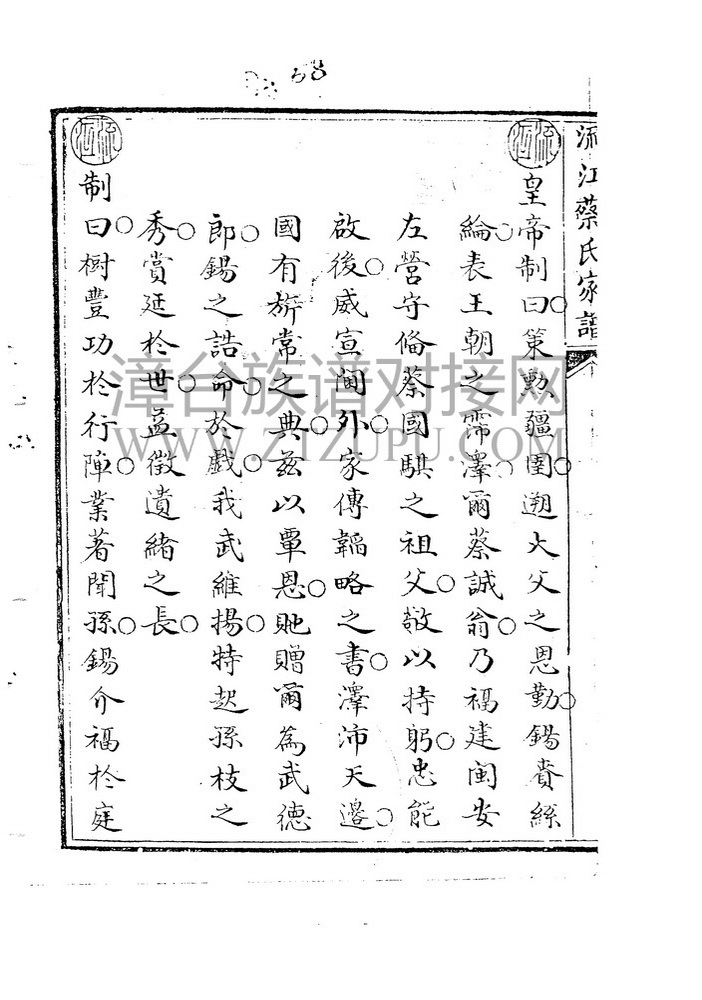 58
流江蔡氏家譜
皇帝制曰策勲疆圉遡大父之恩勤錫賁絲
綸表王朝之霈澤爾蔡誠翁乃福建閩安
左營守俻蔡國騏之祖父敬以持躬忠能
啟後威宣閫外家傳韜略之書澤沛天邊
國有旂常之典兹以覃恩貤贈爾為武德
郎錫之誥命於戲我武維揚特起孫枝之
秀賞延於世益徵遺緒之長
制曰樹豐功於行陣業著聞孫錫介福於庭
漳台族谱对接网
WWW.ZTZUPU.COM